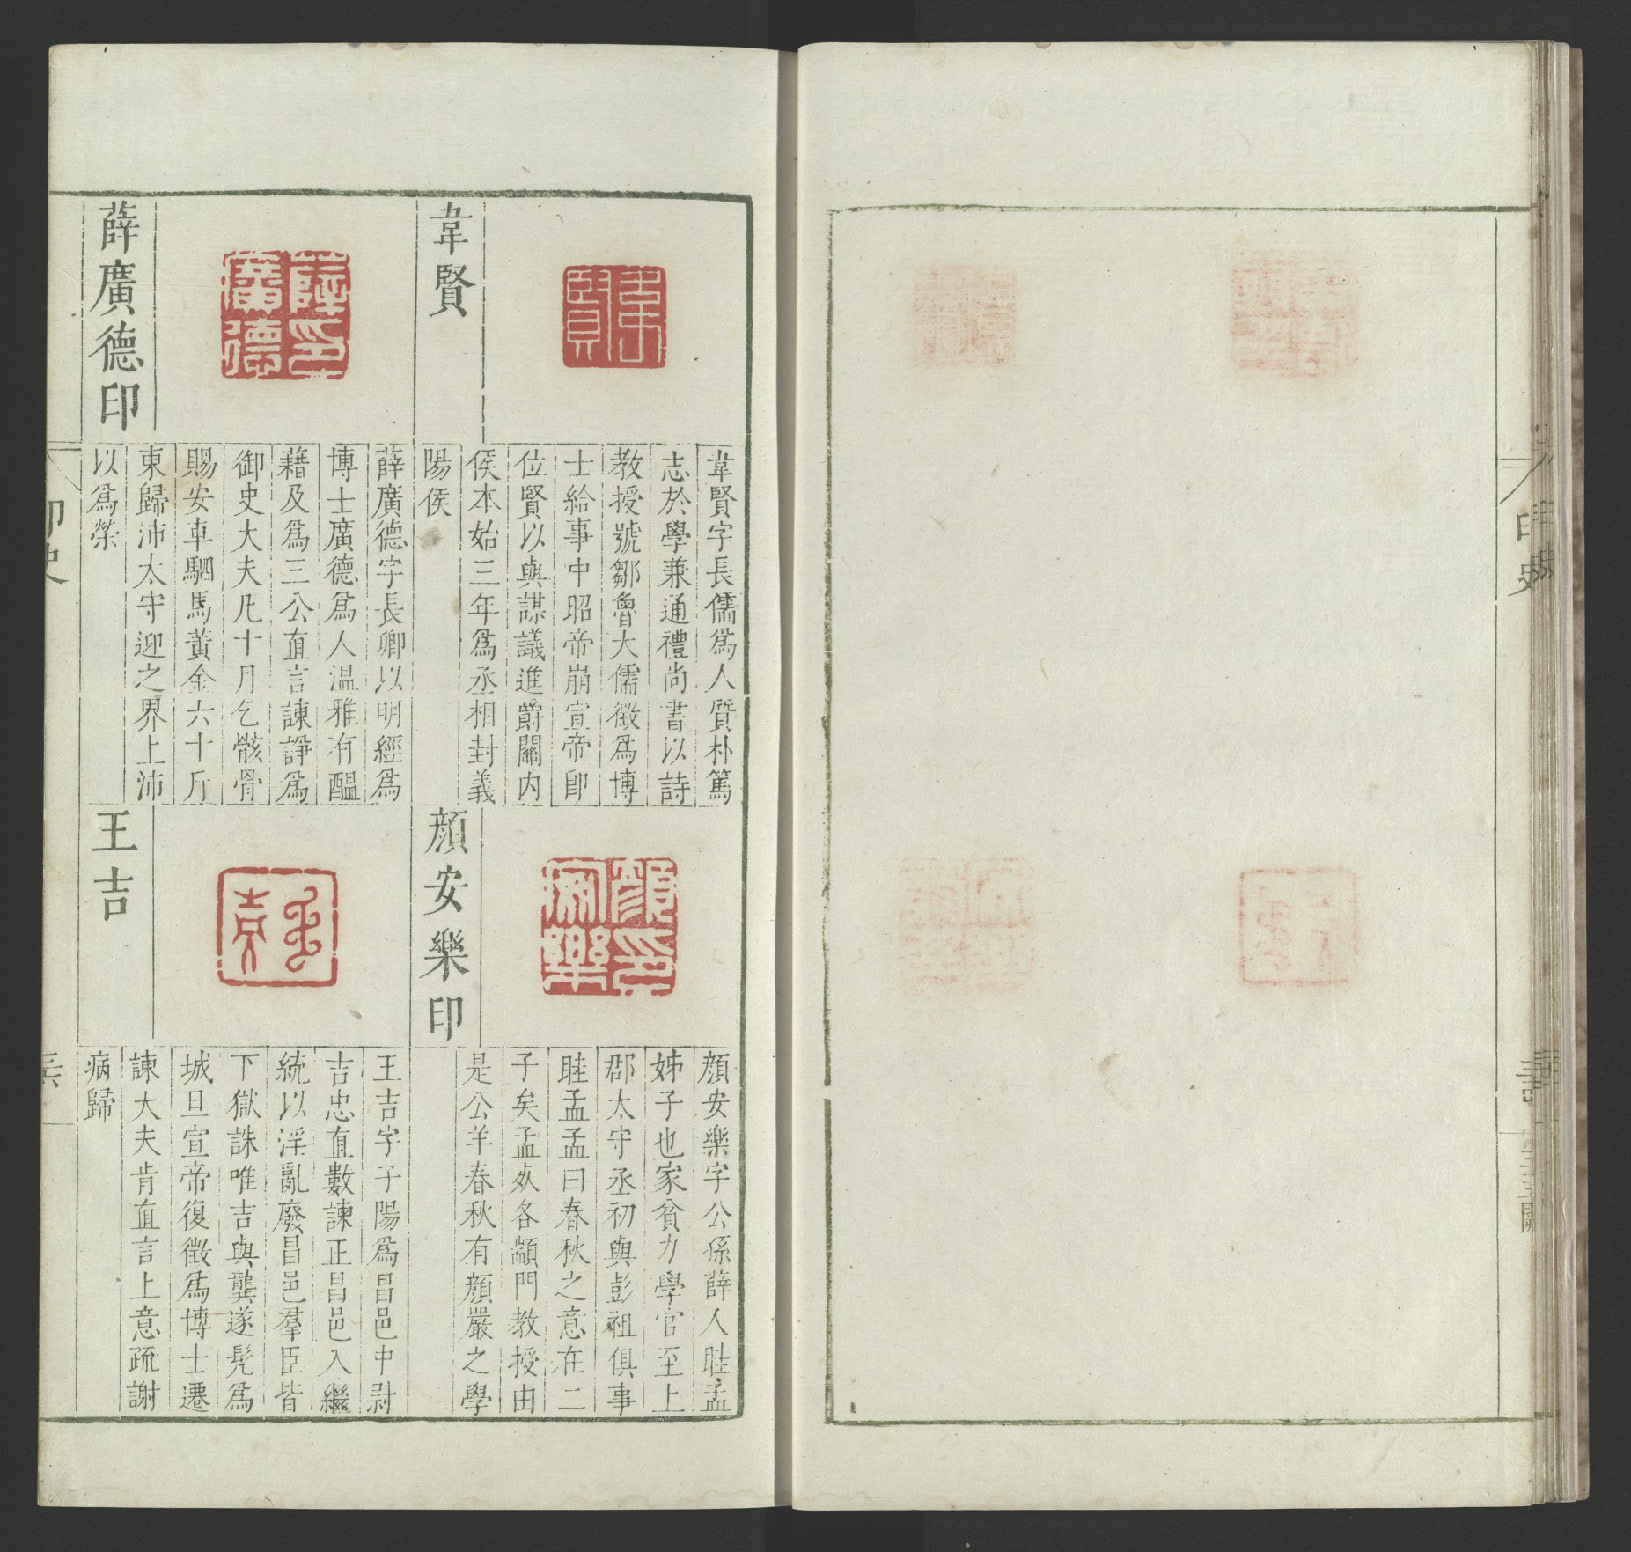 韋賢
韋賢字長儒爲人質朴篤
志於學兼通禮尚書以詩
教授號鄒魯大儒徵爲博
士給事中昭帝崩宣帝卽
位賢以與謀議進爵關内
侯本始三年爲丞相封義
陽侯
薛廣德印
薛廣德字長卿以明經爲
博士廣德爲人温雅有醖
藉及爲三公直言諫諍爲
御史大夫凡十月乞骸骨
賜安車駟馬黃金六十斤
東歸沛太守迎之界上沛
以爲榮
顔安樂印
顔安樂字公孫薛人眭孟
姊子也家貧力學官至上
郡太守丞初與彭祖俱事
眭孟孟曰春秋之意在二
子矣孟死各顓門教授由
是公羊春秋有顔嚴之學
王吉
王吉字子陽爲昌邑中尉
吉忠直數諫正昌邑入繼
統以淫亂廢昌邑羣臣皆
下獄誅唯吉與龔遂髠爲
城旦宣帝復徵爲博士遷
諫大夫肯直言上意疏謝
病歸
印史